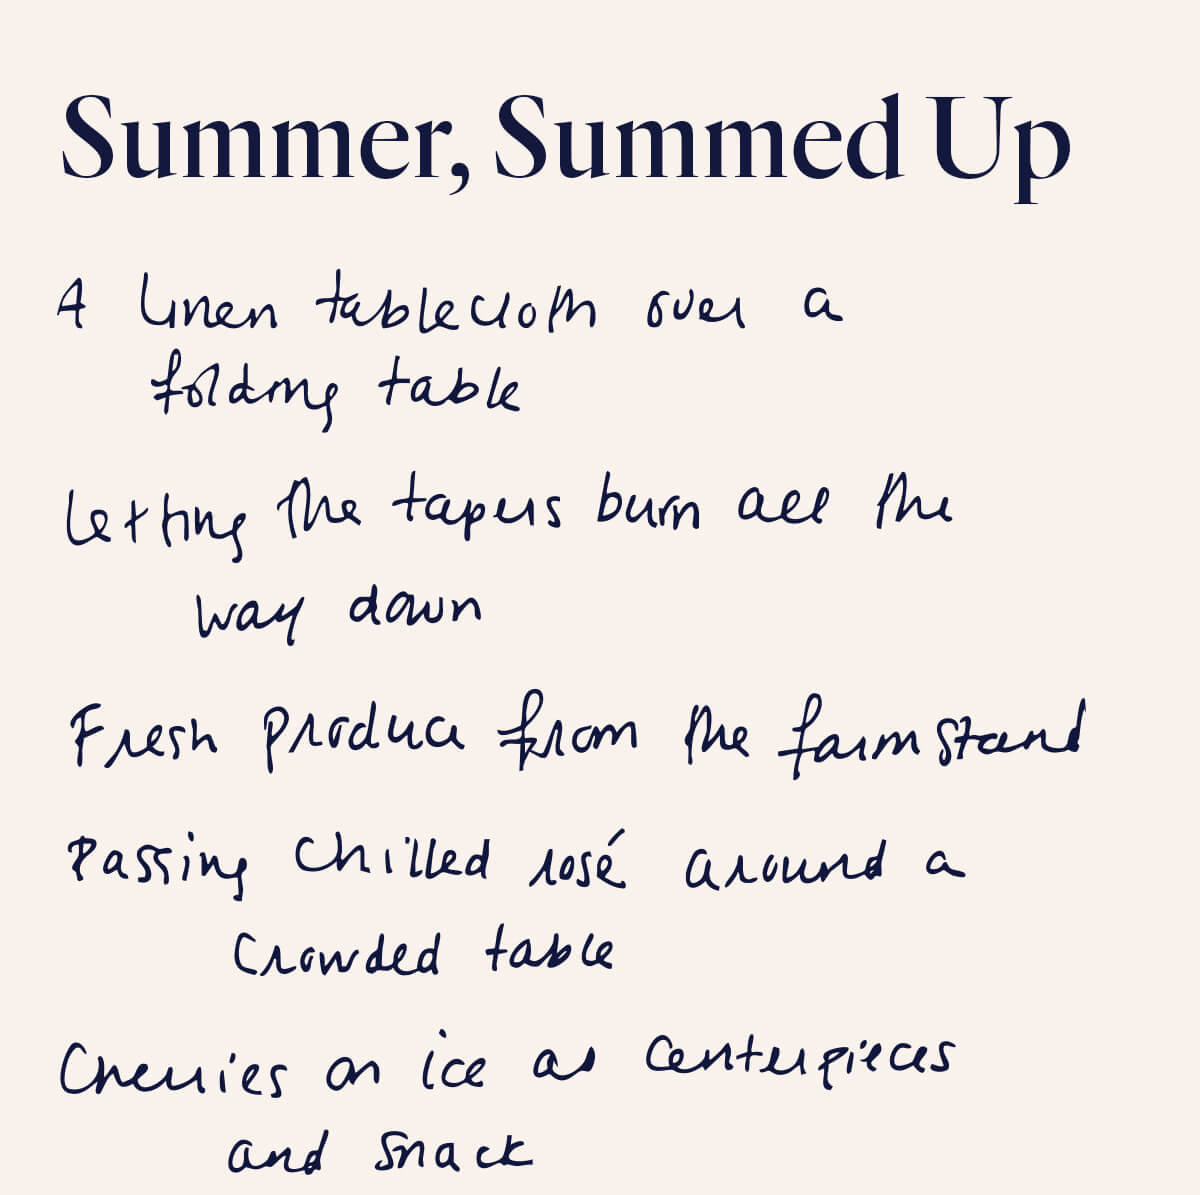 Summer, Summed Up
A linen tablecloth over a
folding table
Letting the tapers burn all the
way down
Fresh produce from the farmstand
Passing chilled rosé around a
crowded table
Cherries on ice as centerpieces
and snack